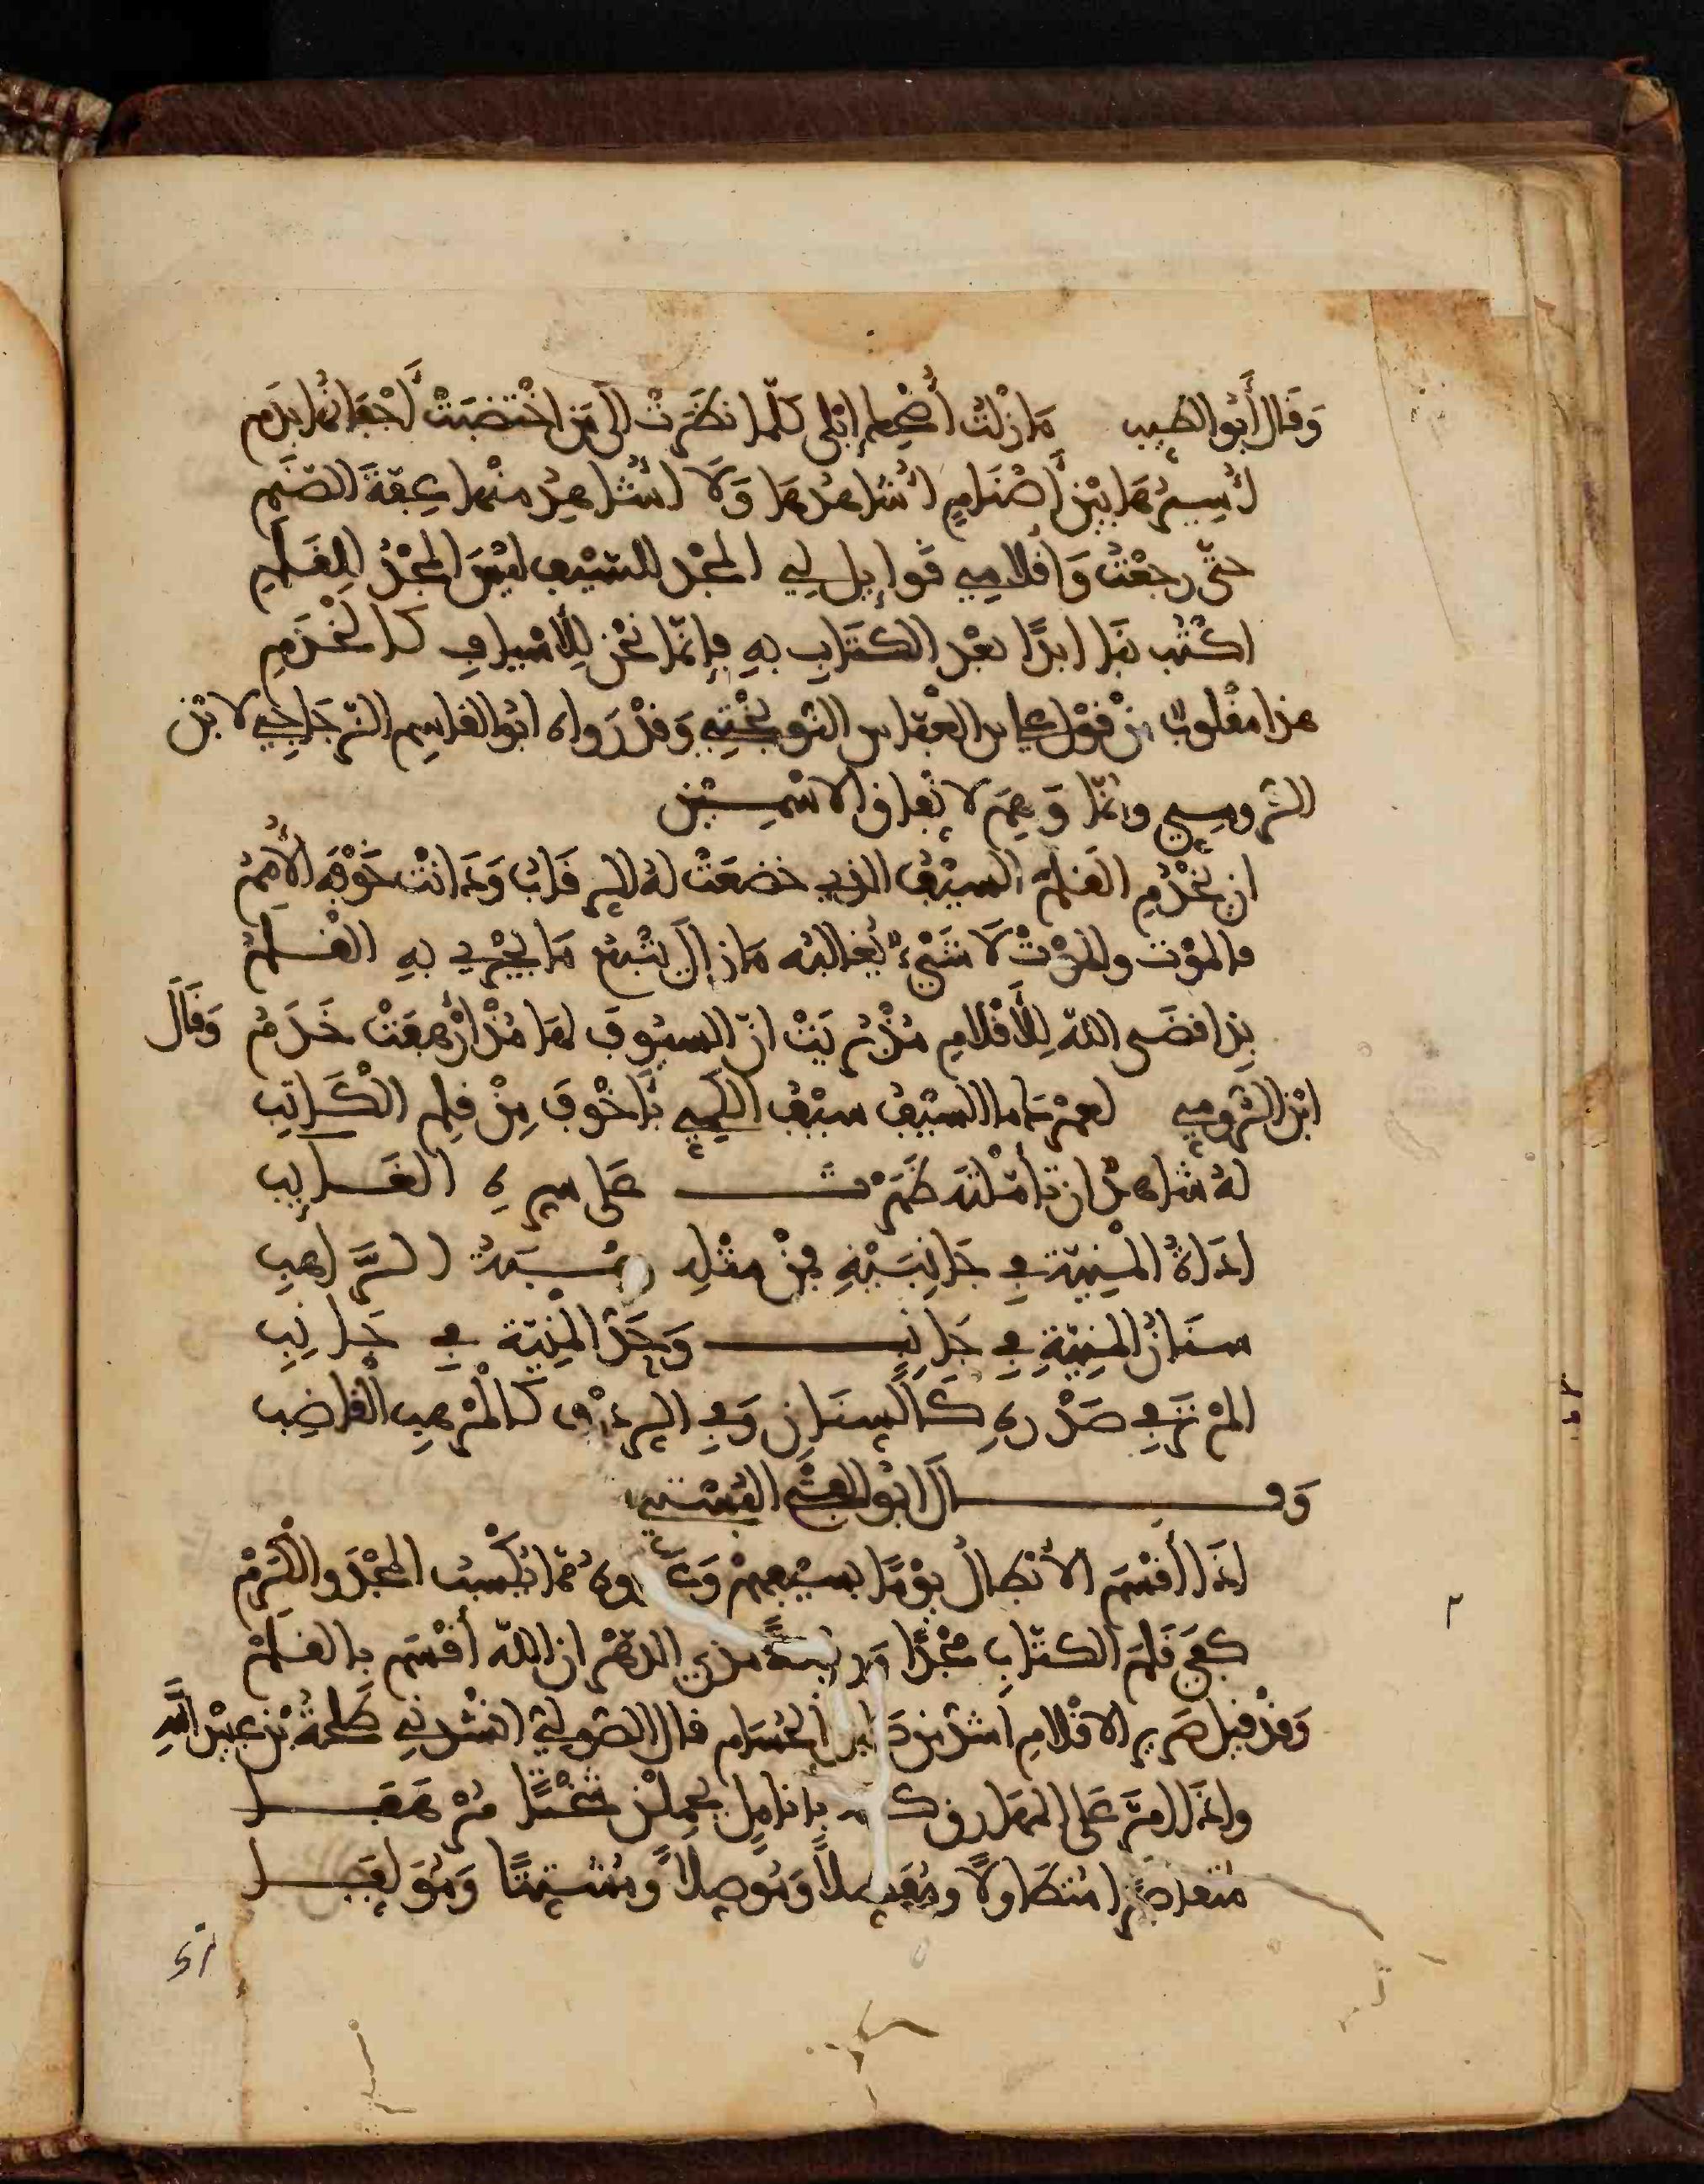 وَقَال أبُو الطيب مَا زلْتُ أُضْحِك إبْلى كلّما نظَرتْ الى مَن اخْتَضَبَتْ أَخْفَافُها بِدَم
أُسِيرُهَا بَيْنَ أَصْنَامٍ أُشَاهِدُهَا وَلَا أُشَاهِدُ مِنْها عِفّةَ الصّنَمِ
حتّى رجعْتُ وَأقْلامِي قوَائِل لِي المجْد للسّيْفِ لَيْسَ المجْدُ لِلْقَلَمِ
اكتُبْ بنَا ابدًا بعْد الكتَابِ بهِ فإنمّا نحْن لِلأَسْيافِ كالْخَدَمِ
هذا مقْلوبٌ مِنْ قوْل على بن العبّاس النّوبَخْتِي وَقدْ رَواه ابُو القاسِم الزّجَاجِي لابْن
الرّومي وانمّا وَهِمَ لاتّفاق الاسْمَيْن
ان يَخْدُمِ القلمُ السيْفَ الذي خضعَتْ لهُ الرقَابُ وَدَانتْ خَوْفَه الأُمَمُ
فالموْت والموْتُ لَا شَيْءٌ يُغالبُه مَا زال يتْبَعُ مَا يجْرِي بهِ القلمُ
بِذا قضَى اللّه لِلأَقْلامِ مُذْ بُرِيَتْ انّ السيُوفَ لهَا مُذْ أُرْهِفَتْ خَدَمُ وَقَالَ
ابْن الرّومِي لعمْرُكَ ما السّيْفُ سيْفُ الكَمِيِّ بأَخْوفَ مِنْ قلم الْكَاتِبِ
لهُ شاهدٌ ان تأمّلتَه ظَهَرْتَ عَلى سرّهِ الغَائِبِ
أدَاةُ الْمنِيّة في جَانِبَيْهِ فمِنْ مثْلِه رهْبَةُ الرَّاهِبِ
سنَانُ المنِيّةِ في جَانِبٍ وَحَدُّ المنِيّة في جَانِبِ
المْ تَرَ في صَدْرِهِ كَالسِّنَانِ وَفي الردْفِ كالْمُرْهفِ الْقَاضِبِ
وَقَالَ ابُو الفتْحِ البُسْتِي
اذَا أقْسَمَ الأبْطالُ يوْمًا بسيْفِهِمْ وَعَدّوهُ ممّا يُكْسِبُ المجْدَ والكَرَمْ
كفَى قَلمَ الكتّابِ مجْدًا وَرفْعةً مدَى الدّهْرِ ان اللّه أقْسَم بالقلَمْ
وَقدْ قيل صَرِير الاقْلامِ أشدّ مِن صَلِيل الحُسَام قال الصّولِيّ انْشدنِي طَلْحةُ بْن عبيْد اللَّهِ
واذَا امَرّ عَلى المهَارق كفّه بأنامِلٍ يحْمِلْنَ شخْتًا مُرْهَفَا
متقاصِرًا متَطَاولًا ومُفَصِّلاً وَمُوَصِلاً وَمُشَتِتًا وَمُوَلِفَا